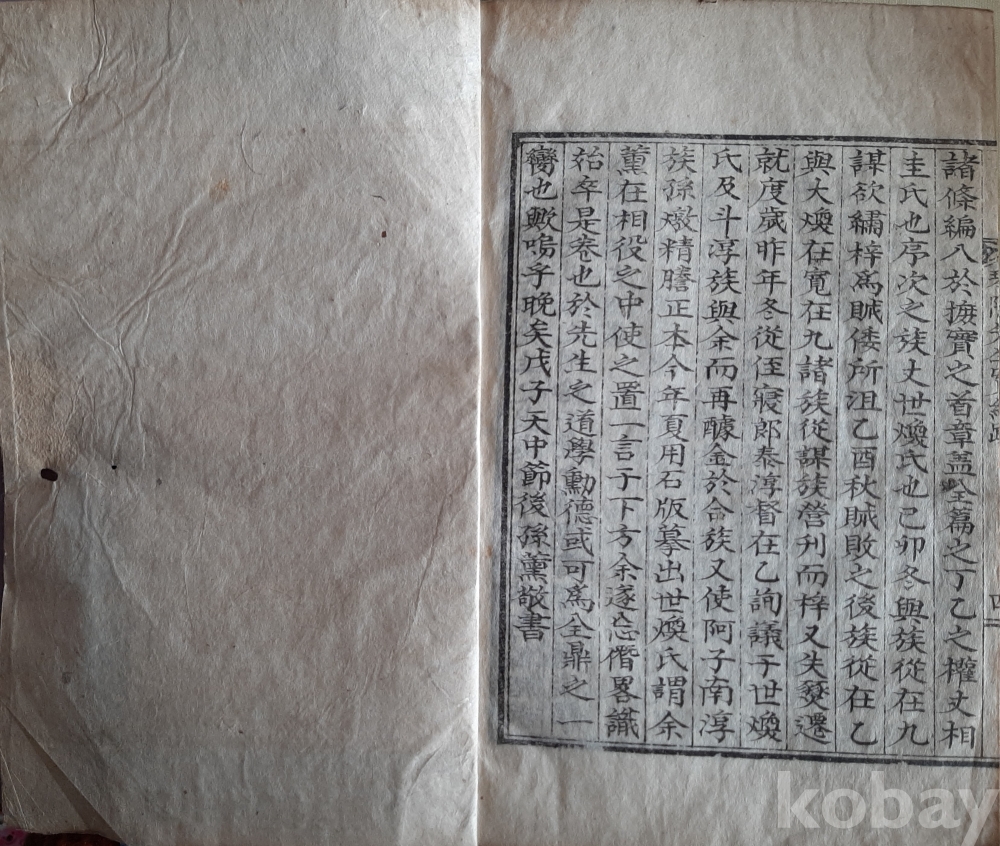 諸條編入於摭實之首章盖全篇之丁乙之權丈相
圭氏也序次之族丈世煥氏也己卯冬與族從在九
謀欲繡梓爲贼倭所沮乙酉秋贼敗之後族從在乙
與大煥在寬在九諸族從謀族營刊而梓又失爕遷
就度歲昨年冬從侄寢郎泰淳督在乙詢議于世煥
氏及斗淳族與余而再醵金於佥族又使阿子南淳
族孫燉精謄正本今年夏用石版摹出世煥氏謂余
薰在相役之中使之置一言于下方余遂忘僭畧識
始卒是卷也於先生之道學勳德或可爲全鼎之一
臠也歟嗚乎晚矣戊子天中節後孫薰敬書
kobay